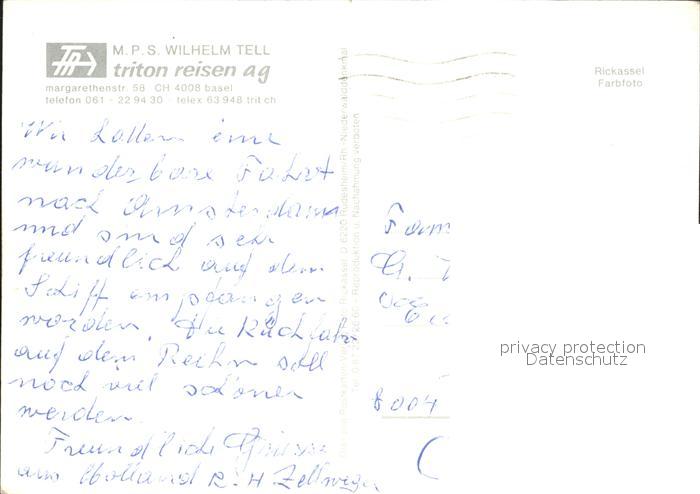 M.P.S. WILHELM TELL
triton reisen ag
margarethenstr. 58 CH 4008 basel
telefon 061 - 22 94 30 - telex 63 948 trit ch
Rickassel
Farbfoto
Wir hatten eine
wunderbare Fahrt
nach Amsterdam
und sind sehr
freundlich auf dem
Schiff empfangen
worden. Die Rückfahrt
auf dem Reihn soll
noch viel schöner
werden.
Freundliche Grüsse
aus Holland R. H Zellweger
Fam
G.
8004
privacy protection
Datenschutz